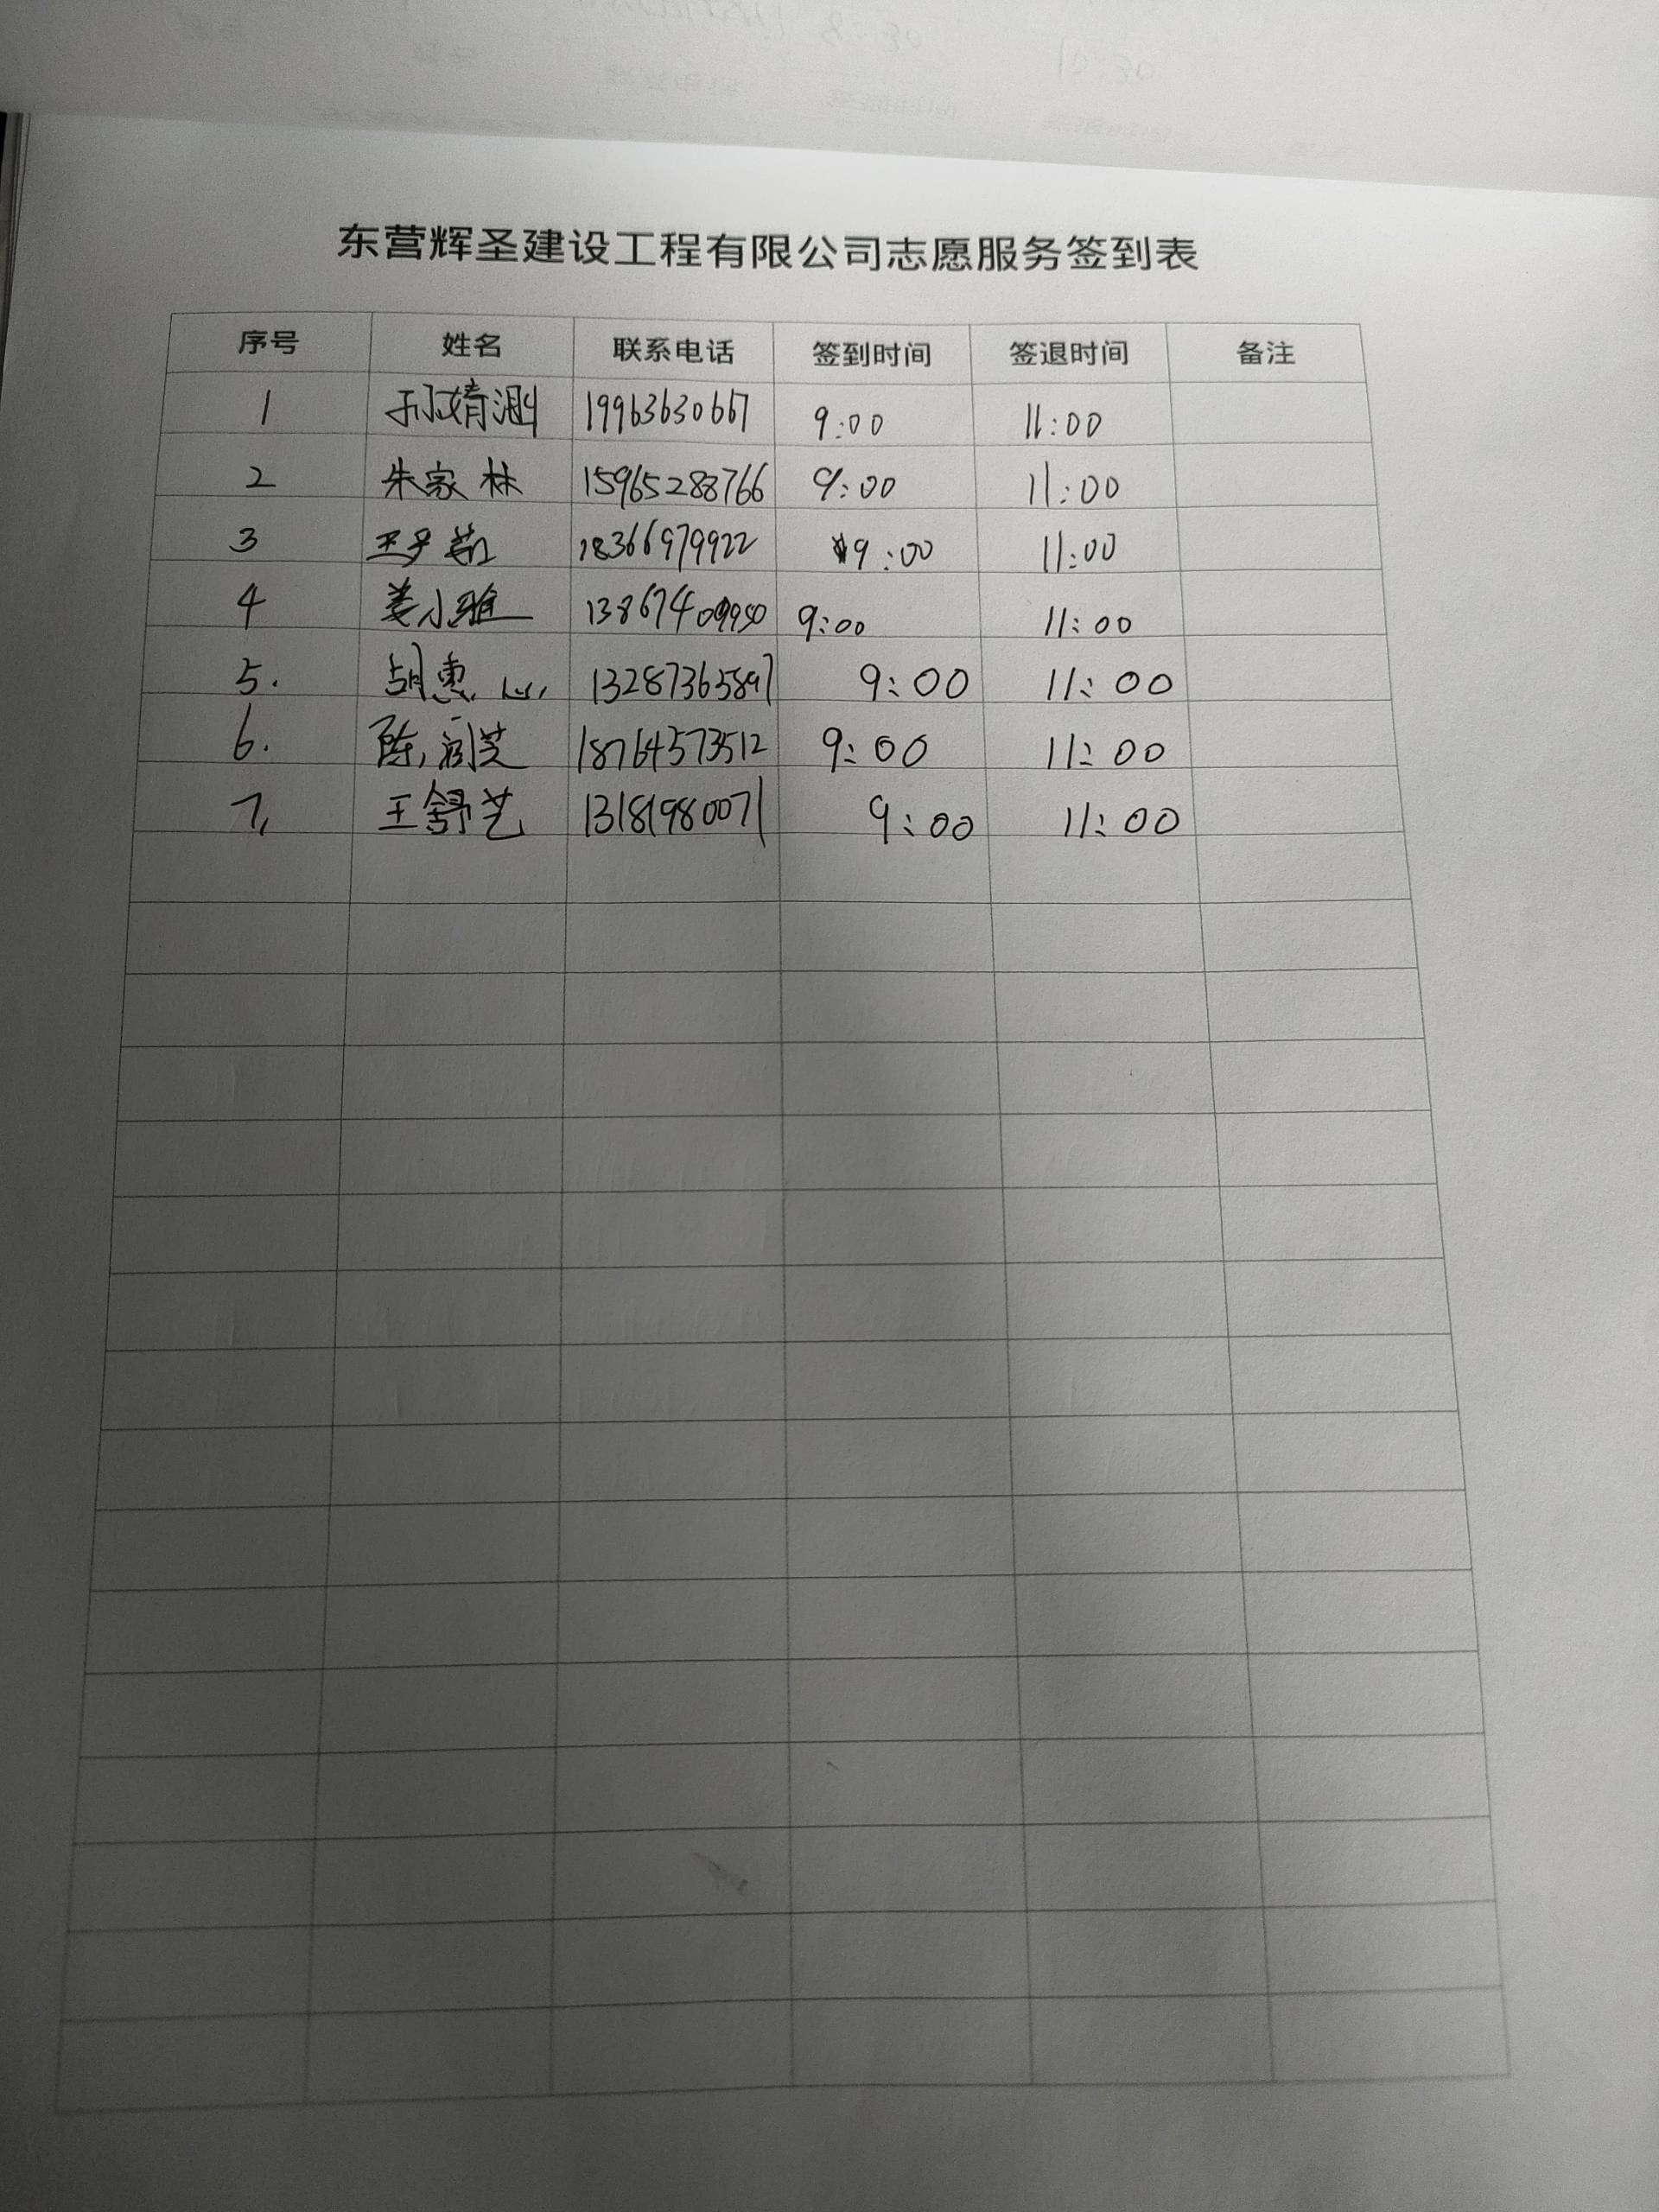 东营辉圣建设工程有限公司志愿服务签到表
序号 姓名 联系电话 签到时间 签退时间 备注
1 孙婧溷 19963630667 9:00 11:00
2 朱家林 15965288766 9:00 11:00
3 18366979922 9:00 11:00
4 姜小雅 9:00 11:00
5. 胡惠心 13287365897 9:00 11:00
6. 陈润芝 18764573512 9:00 11:00
7, 王舒艺 13181980071 9:00 11:00